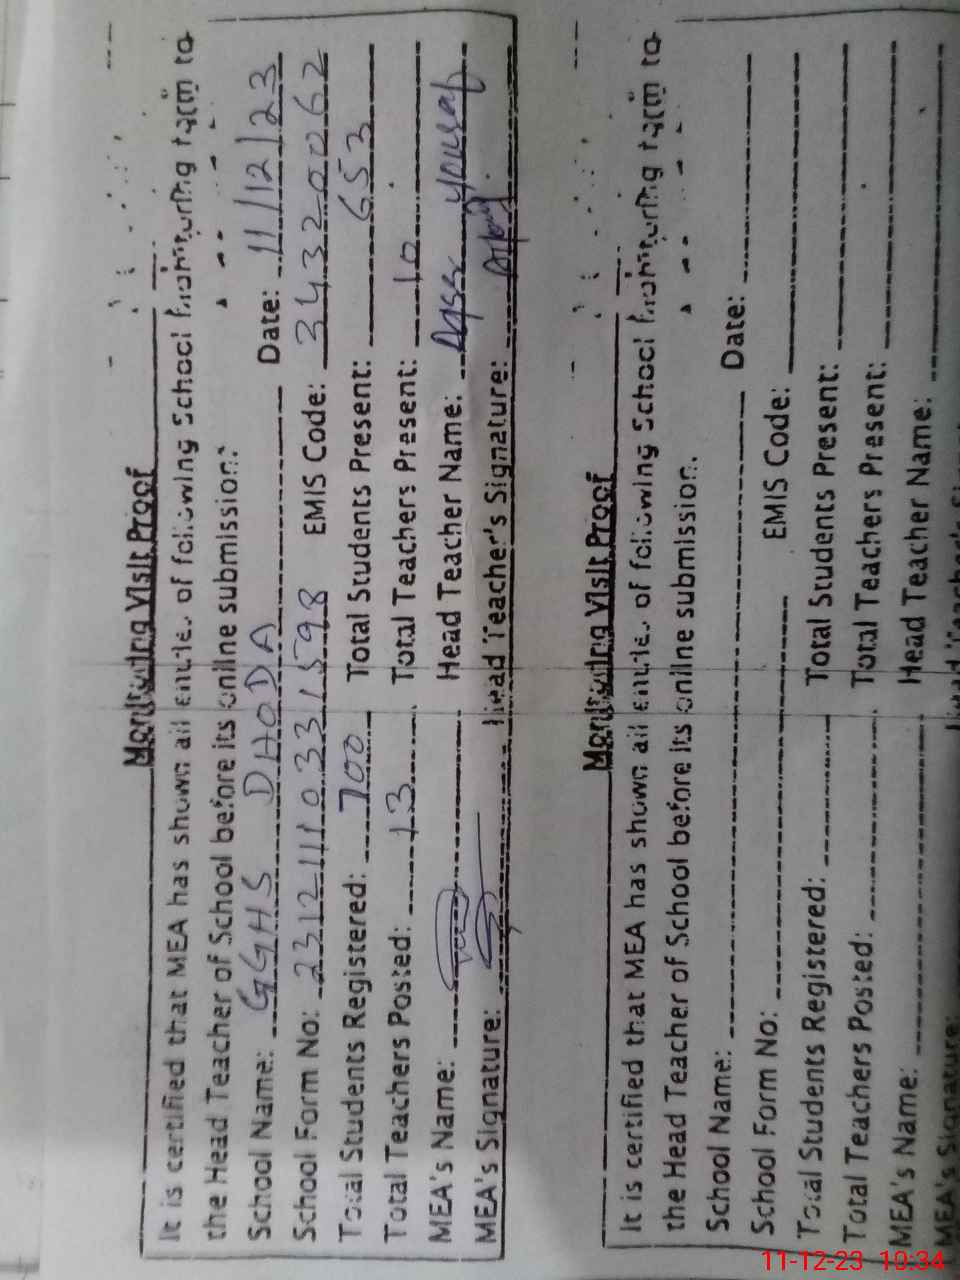 Monitoring Visit Proof
It is certified that MEA has shown all entries of following School Monitoring form to
the Head Teacher of School before its online submission.
School Name: GGHS DHODA Date: 11/12/23
School Form No: 23121110331598 EMIS Code: 34320062
Total Students Registered: 700 Total Students Present: 653
Total Teachers Posted: 13 Total Teachers Present: 10
MEA's Name: Head Teacher Name: yousaf
MEA's Signature: Head Teacher's Signature:
Monitoring Visit Proof
It is certified that MEA has shown all entries of following School Monitoring form to
the Head Teacher of School before its online submission.
School Name: Date:
School Form No: EMIS Code:
Total Students Registered: Total Students Present:
Total Teachers Posted: Total Teachers Present:
MEA's Name: Head Teacher Name:
MEA's Signature: Head Teacher's
11-12-23 10:34